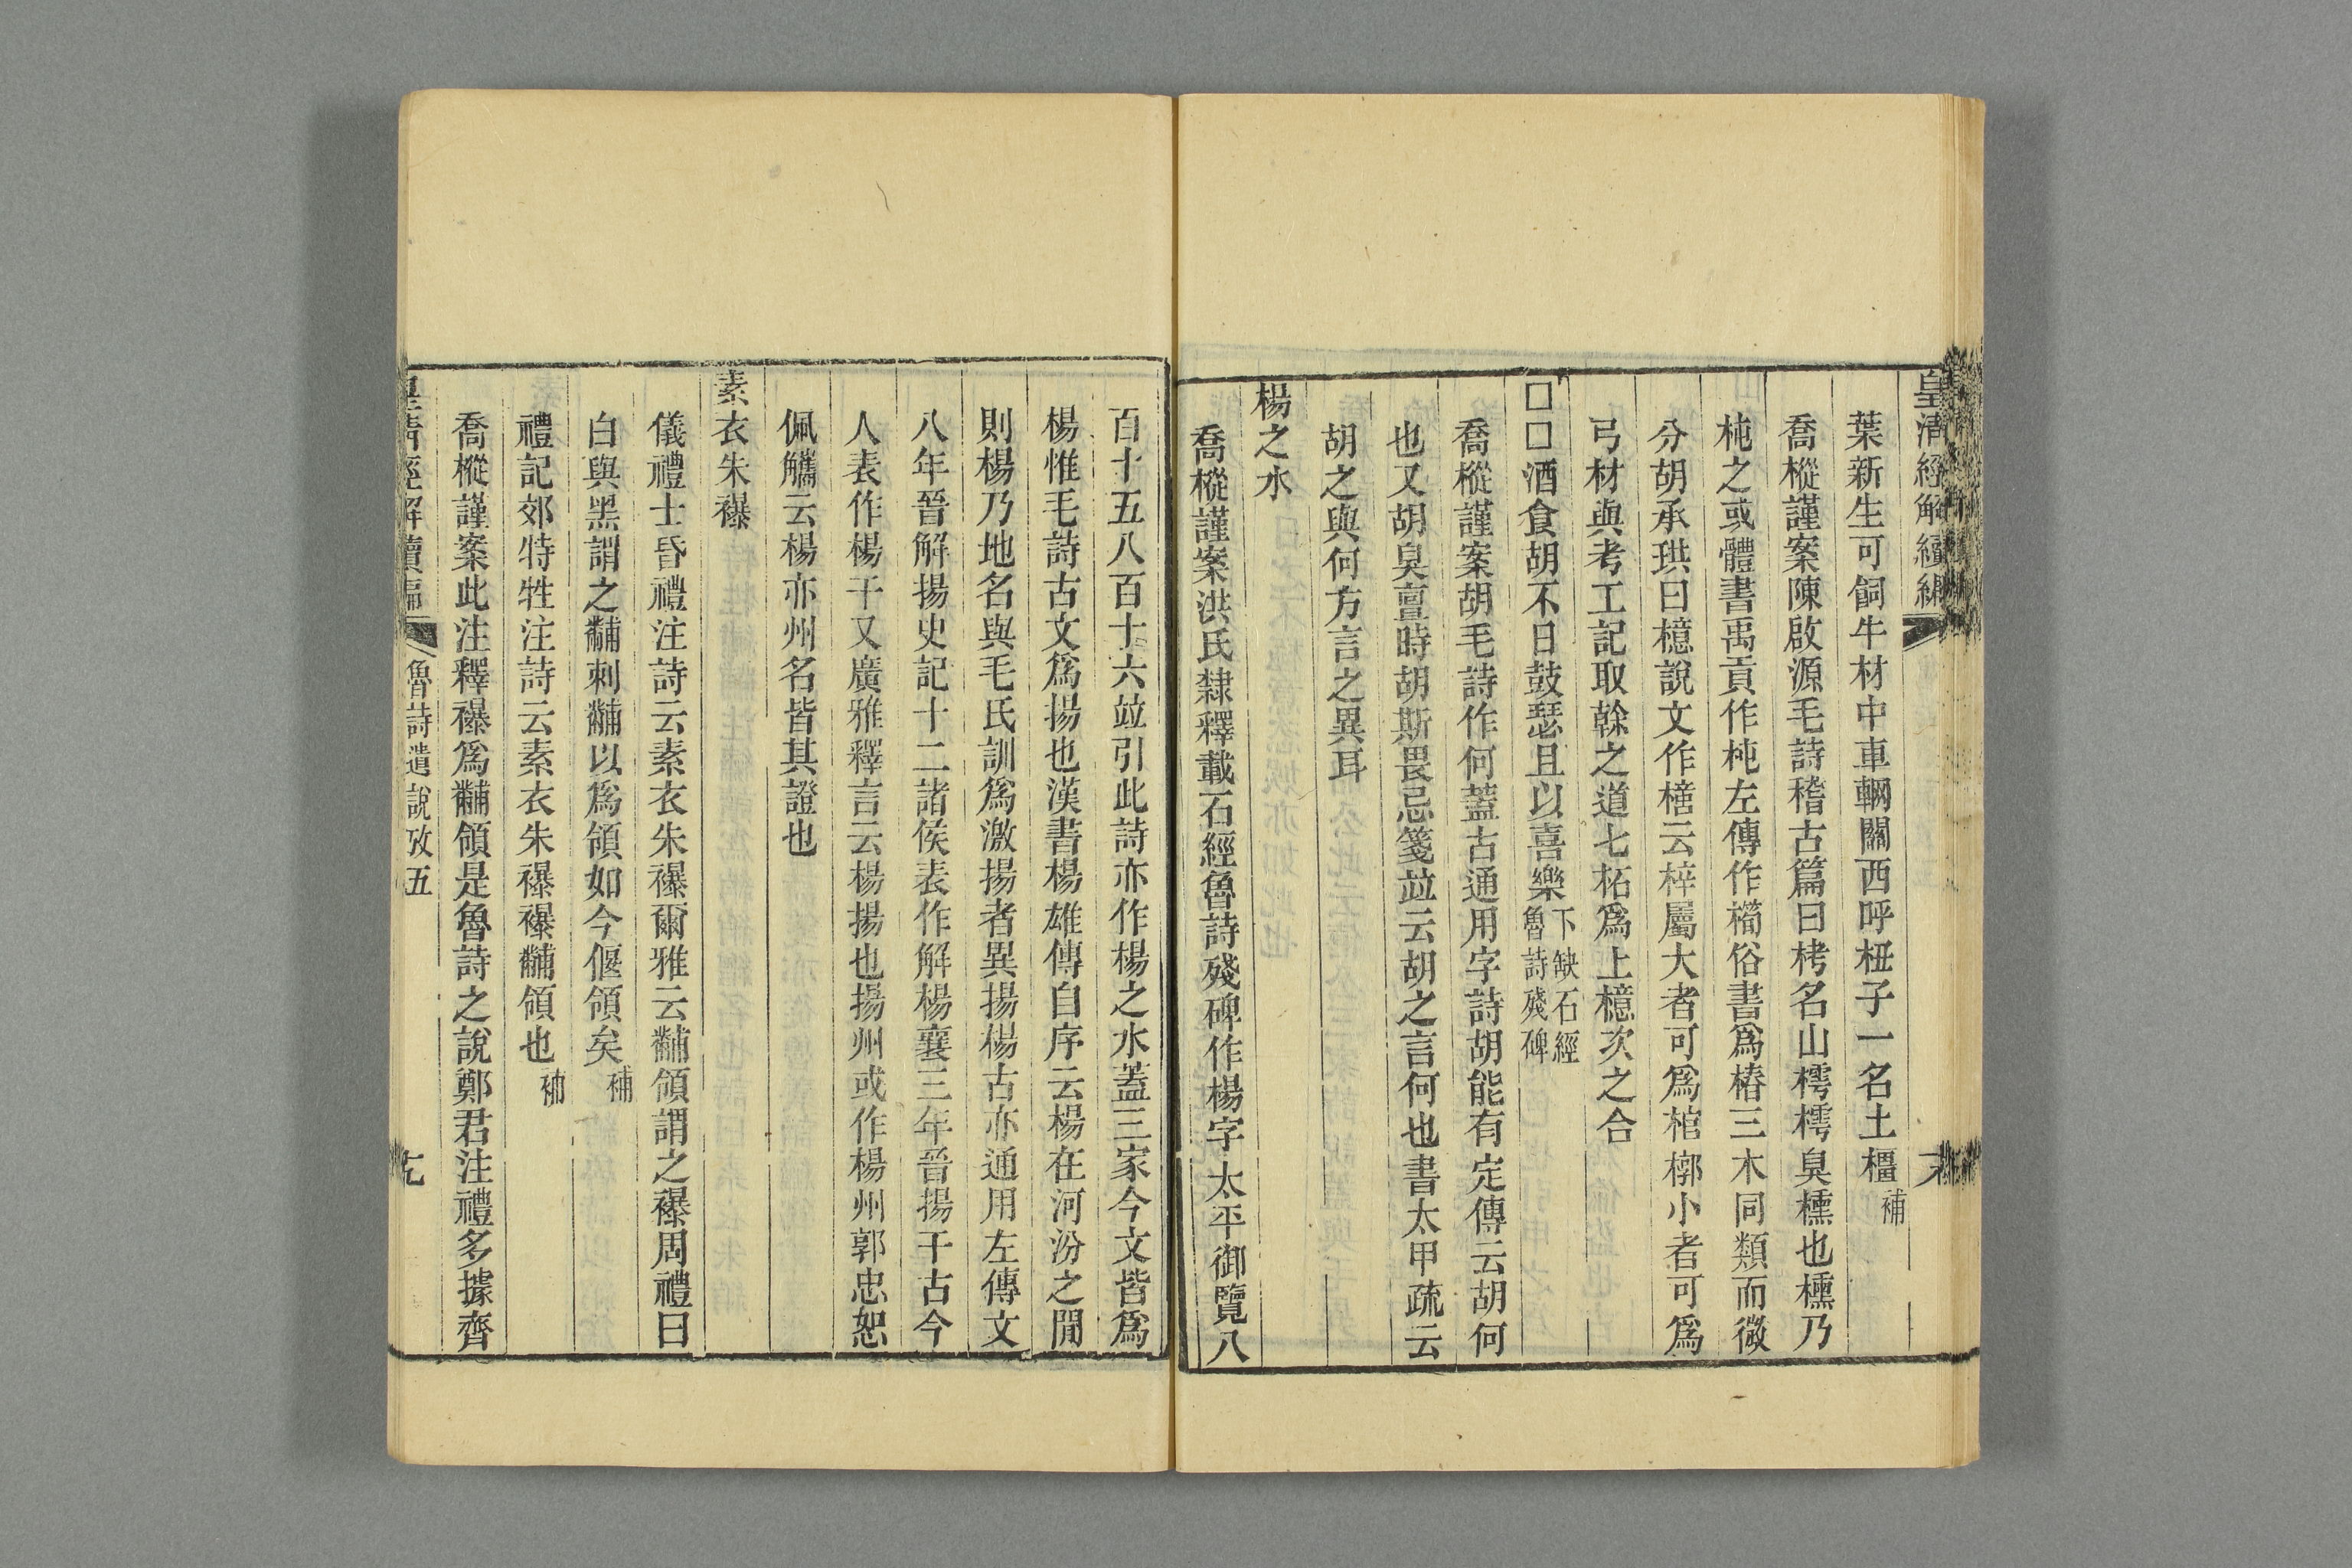 皇清經解續編
葉新生可飼牛材中車輞關西呼杻子一名土橿補
喬樅謹案陳啟源毛詩稽古篇曰栲名山樗樗臭櫄也櫄乃
杶之或體書禹貢作杶左傳作櫄俗書爲椿三木同類而微
分胡承珙曰檍說文作㯆云梓屬大者可爲棺槨小者可爲
弓材與考工記取榦之道七柘爲上檍次之合
□□酒食胡不日鼓瑟且以喜樂下缺石經魯詩殘碑
喬樅謹案胡毛詩作何蓋古通用字詩胡能有定傳云胡何
也又胡臭亶時胡斯畏忌箋竝云胡之言何也書太甲疏云
胡之與何方言之異耳
楊之水
喬樅謹案洪氏隸釋載石經魯詩殘碑作楊字太平御覽八
百十五八百十六竝引此詩亦作楊之水蓋三家今文皆爲
楊惟毛詩古文爲揚也漢書楊雄傳自序云楊在河汾之閒
則楊乃地名與毛氏訓爲激揚者異揚楊古亦通用左傳文
八年晉解揚史記十二諸侯表作解楊襄三年晉揚干古今
人表作楊干又廣雅釋言云楊揚也揚州或作楊州郭忠恕
佩觿云楊亦州名皆其證也
素衣朱襮
儀禮士昏禮注詩云素衣朱襮爾雅云黼領謂之襮周禮曰
白與黑謂之黼刺黼以爲領如今偃領矣補
禮記郊特牲注詩云素衣朱襮襮黼領也補
喬樅謹案此注釋襮爲黼領是魯詩之說鄭君注禮多據齊
皇清經解續編 魯詩遺說攷五